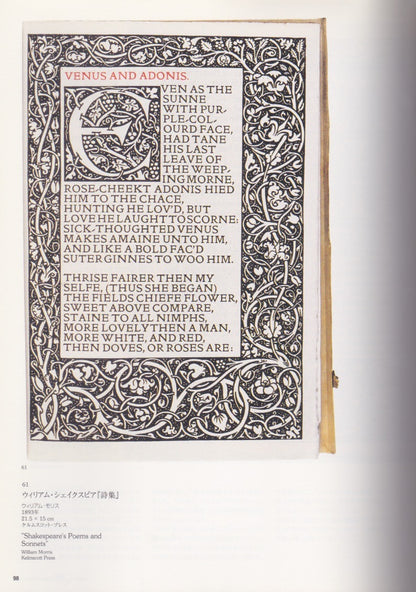 VENUS AND ADONIS.
EVEN AS THE
SUNNE
WITH PUR-
PLE-COL-
OURD FACE,
HAD TANE
HIS LAST
LEAVE OF
THE WEEP-
ING MORNE,
ROSE-CHEEKT ADONIS HIED
HIM TO THE CHACE,
HUNTING HE LOV'D, BUT
LOVE HE LAUGHT TO SCORNE:
SICK-THOUGHTED VENUS
MAKES AMAINE UNTO HIM,
AND LIKE A BOLD FAC'D
SUTER GINNES TO WOO HIM.
THRISE FAIRER THEN MY
SELFE, (THUS SHE BEGAN)
THE FIELDS CHIEFE FLOWER,
SWEET ABOVE COMPARE,
STAINE TO ALL NIMPHS,
MORE LOVELY THEN A MAN,
MORE WHITE, AND RED,
THEN DOVES, OR ROSES ARE:
61
61
ウィリアム・シェイクスピア『詩集』
ウィリアム・モリス
1893年
21.5 × 15 cm
ケルムスコット・プレス
"Shakespeare's Poems and
Sonnets"
William Morris
Kelmscott Press
98